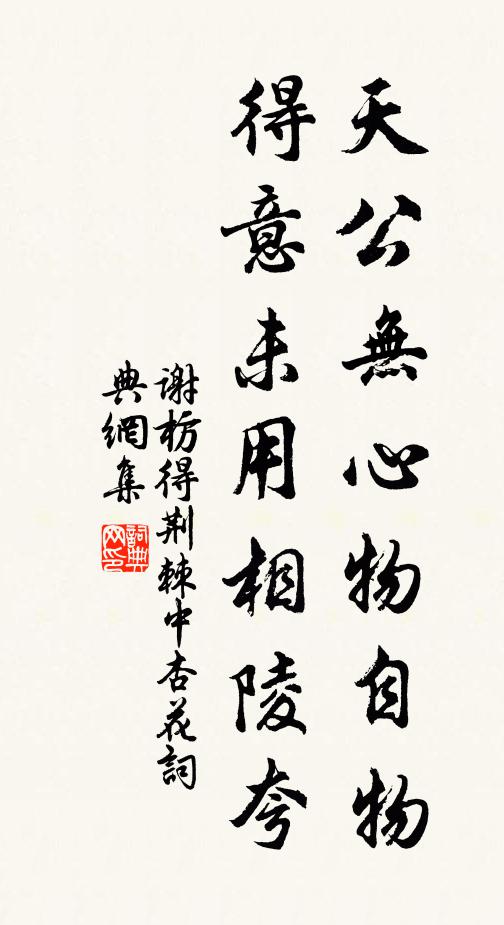 天公無心物自物
得意未用相陵夸
谢枋得荆棘中杏花詞
典網集
詞典
网印